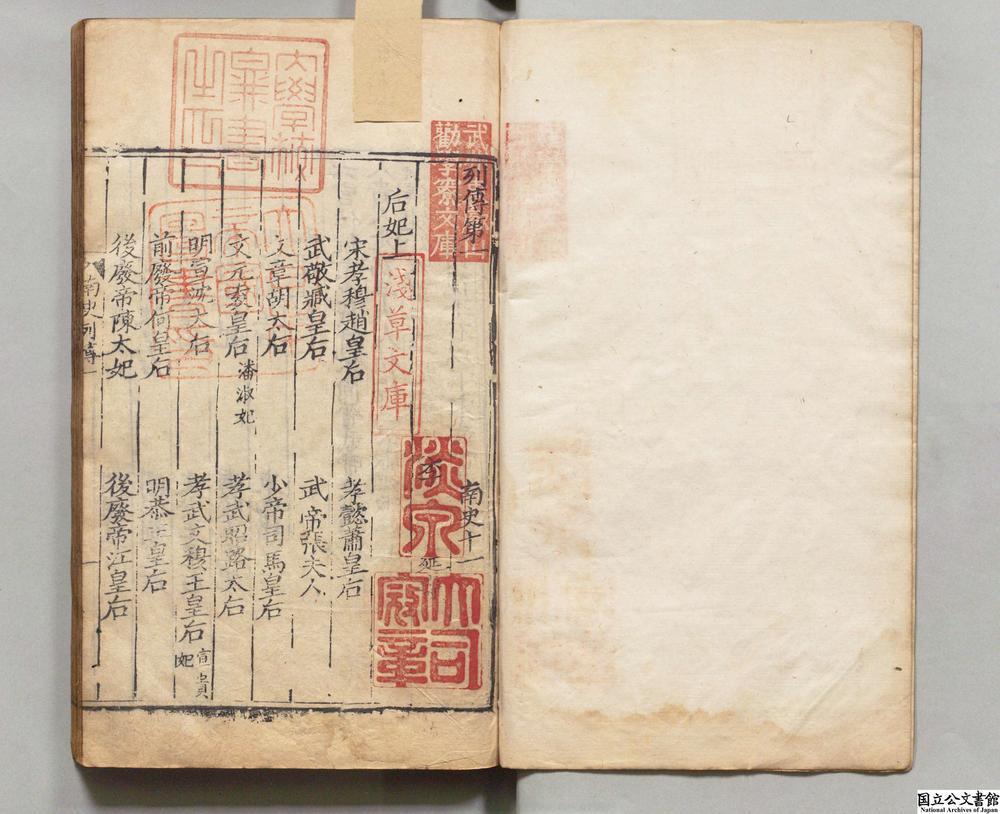 列傳第一
南史十一
李延壽
后妃上
宋孝穆趙皇后
孝懿蕭皇后
武敬臧皇后
武帝張夫人
文章胡太后
少帝司馬皇后
文元袁皇后 潘淑妃
孝武昭路太后
明宣沈太后
孝武文穆王皇后 宣貴妃
前廢帝何皇后
明恭王皇后
後廢帝陳太妃
後廢帝江皇后
南史列傳一
一
淺草文庫
大學校
圖書
之印
武
勸學齋文庫
淡
大司
寇章
国立公文書館
National Archives of Japan